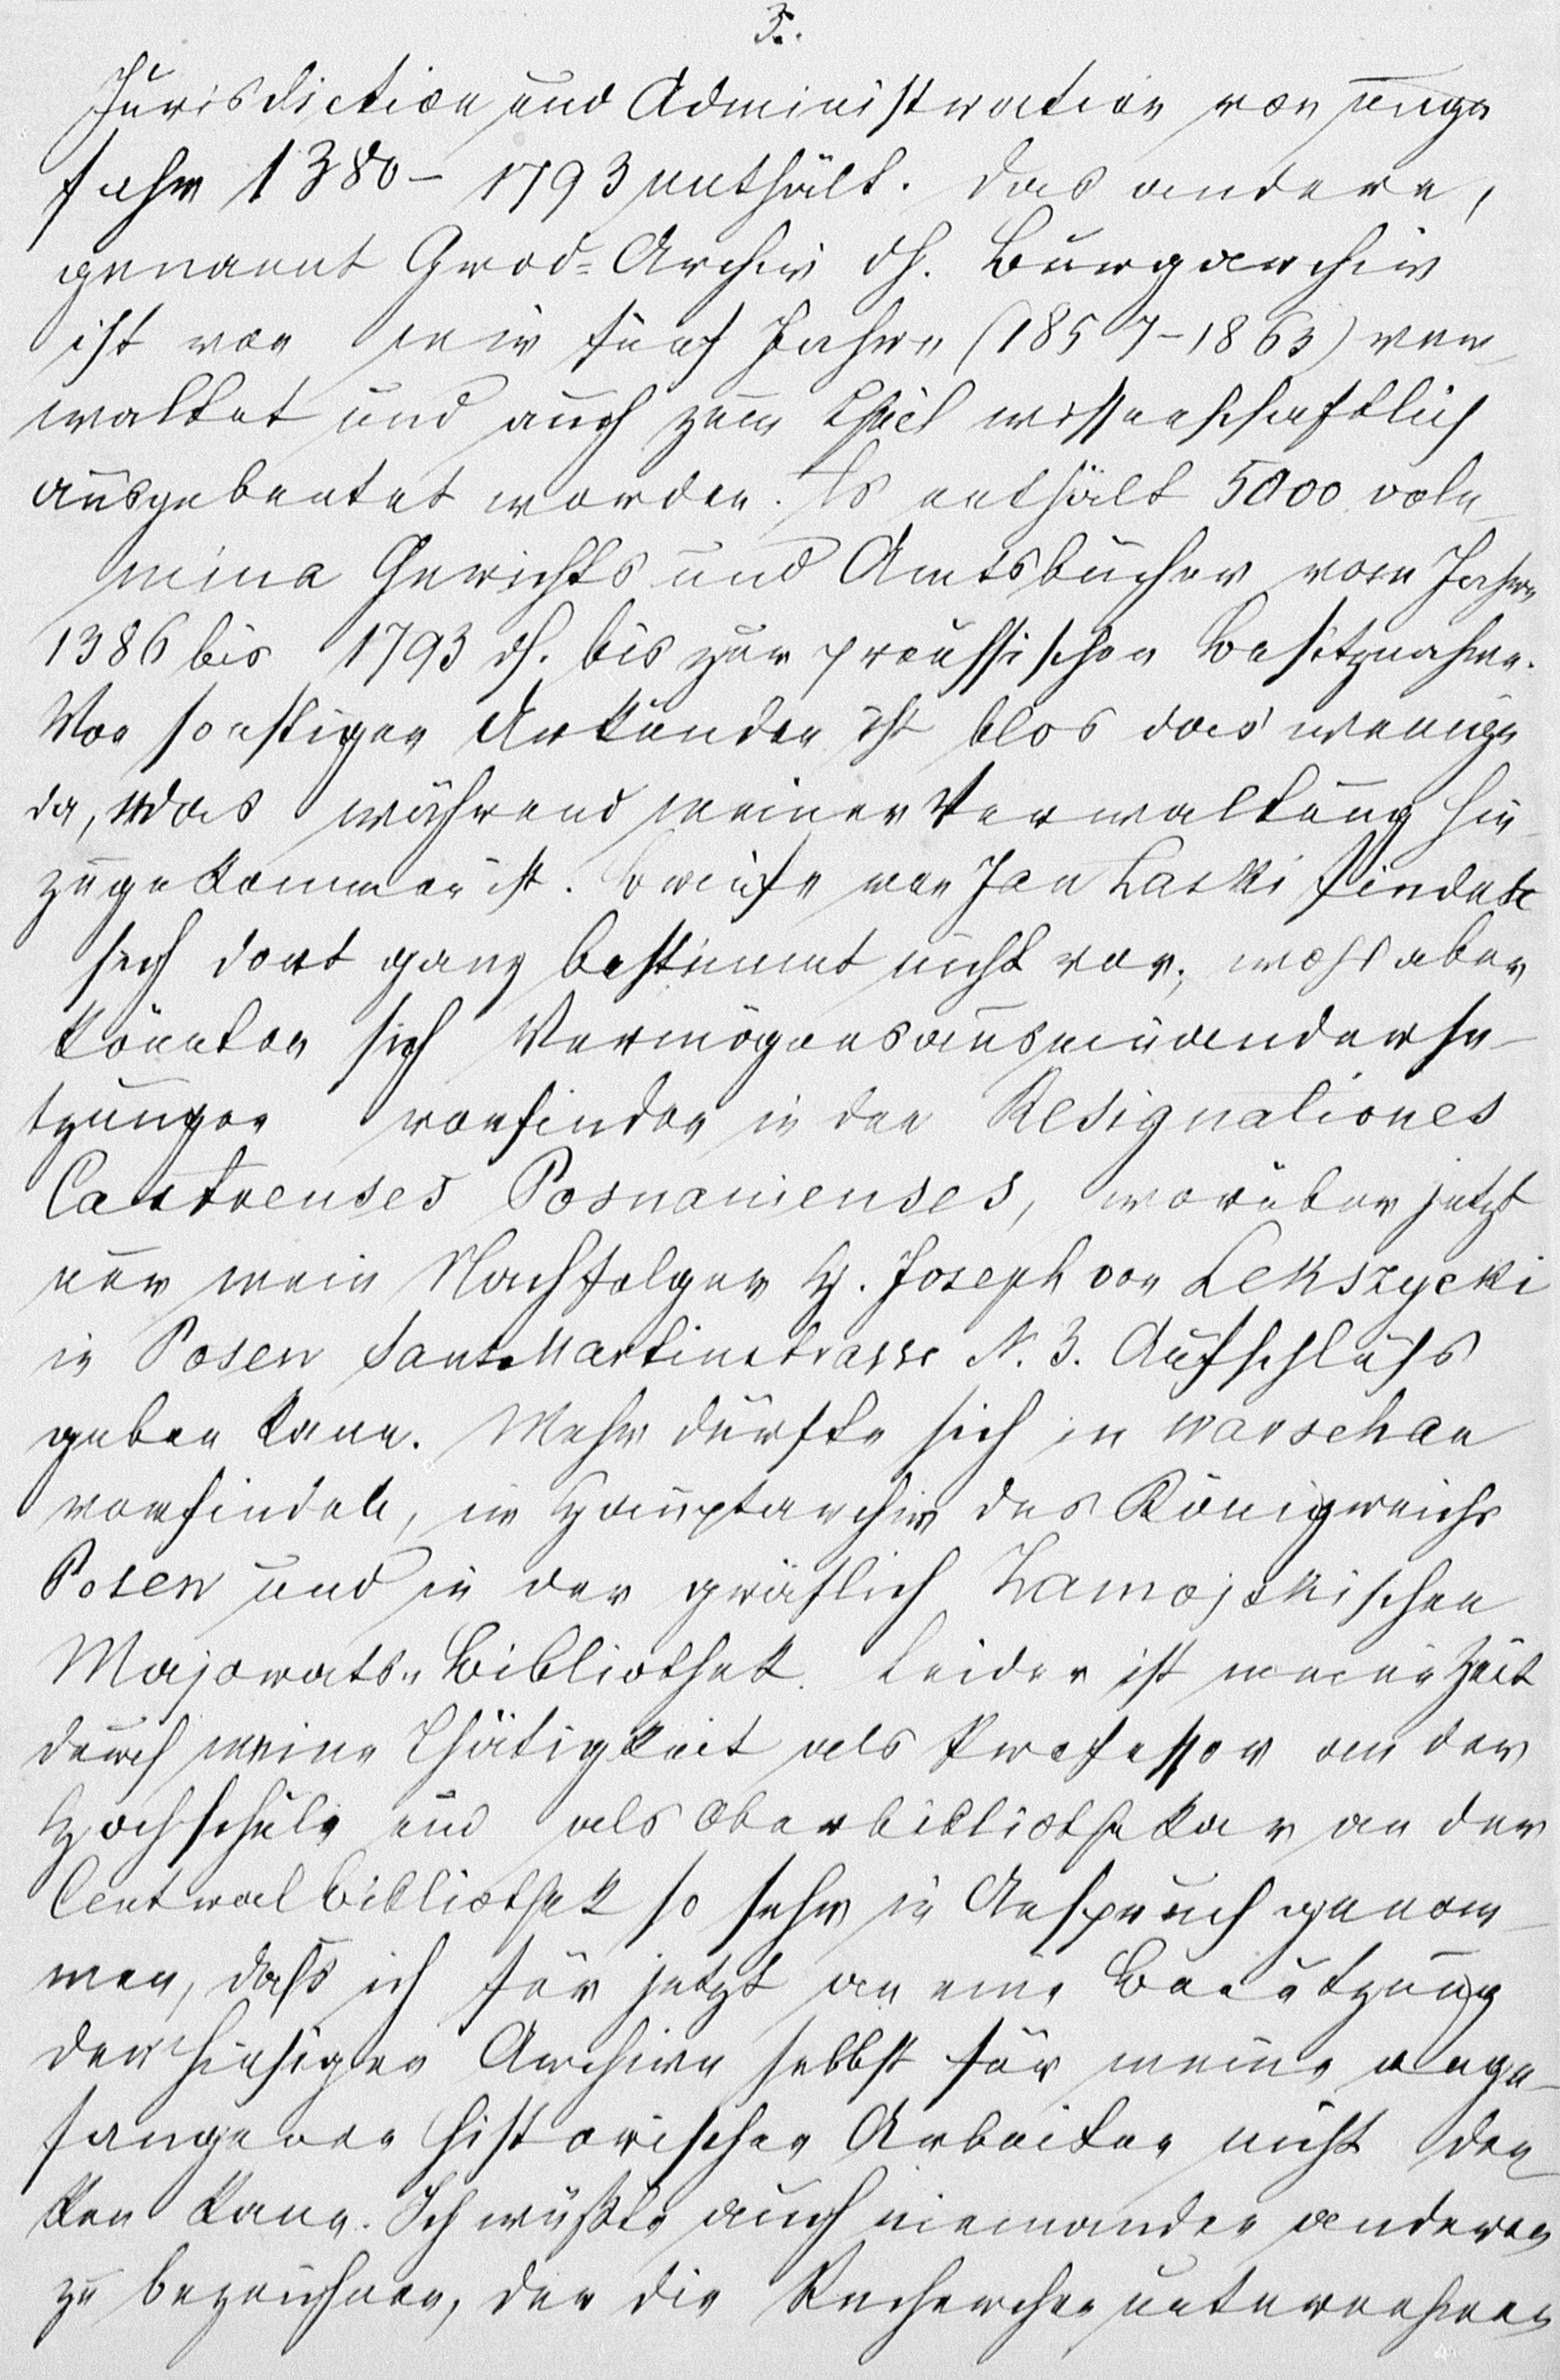 3.
Jurisdiction und Administration von unge
fahr 1380 – 1793 enthält. Das andere,
genannt Grod-Archiv dh. Burgarchiv
ist von mir fünf Jahre (1857–1863) ver-
waltet und auch zum Theil wissenschaftlich
ausgebeutet worden. Es enthält 5000 volu-
mina Gerichts und Amtsbücher vom Jahre
1386 bis 1793 dh. bis zur preussischen Besitznahme.
Von sonstigen Urkunden ist blos das wenige
da, was während meiner Verwaltung hin-
zugekommen ist. Briefe von Jan Laski finden
sich dort ganz bestimmt nicht vor, wohl aber
könnten sich Vermögensauseinanderse-
tzungen vorfinden in den Resignationes
Castrenses Posnanienses, worüber jetzt
nur mein Nachfolger H. Joseph von Lekszycki
in Posen Sanct Martinstrasse N. 3. Aufschluss
geben kann. Mehr dürfte sich in Warschau
vorfinden, im Hauptarchiv des Königreichs
Posen und in der gräflich Zamojskischen
Majorats-Bibliothek. Leider ist meine Zeit
durch meine Thätigkeit als Professor an der
Hochschule und als Oberbibliothekar an der
Centralbibliothek so sehr in Anspruch genom-
men, dass ich für jetzt an eine Benützung
der hiesigen Archive selbst für meine ange-
fangenen historischen Arbeiten nicht den-
ken kann. Ich wüßte auch niemanden anderen
zu bezeichnen, der die Recherchen unternehmen